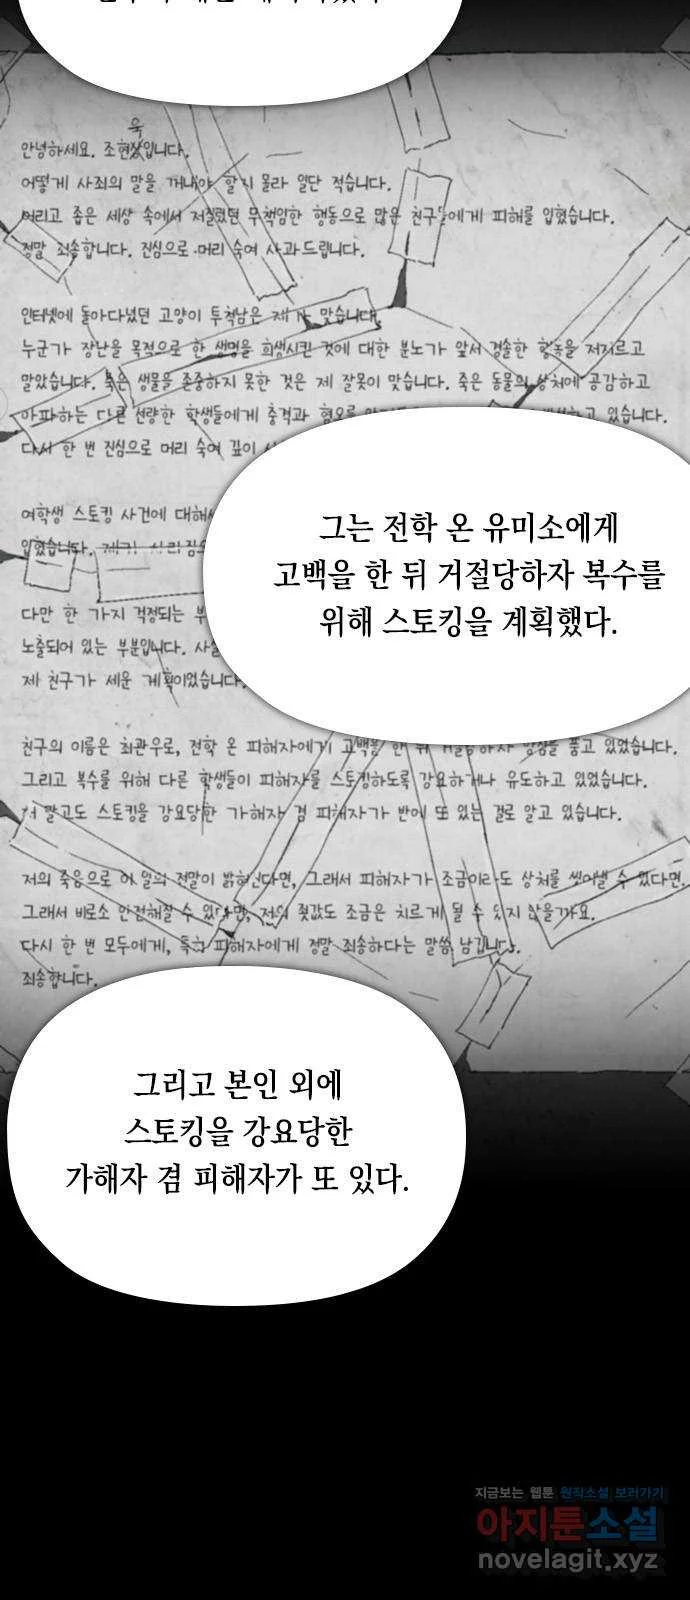 안녕하세요. 조현욱입니다.
어떻게 사죄의 말을 꺼내야 할지 몰라 일단 적습니다.
어리고 좁은 세상 속에서 저질렀던 무책임한 행동으로 많은 친구들에게 피해를 입혔습니다.
정말 죄송합니다. 진심으로 머리 숙여 사과드립니다.
인터넷에 돌아다녔던 고양이 투척남은 제가 맞습니다.
누군가 장난을 목적으로 한 생명을 희생시킨 것에 대한 분노가 앞서 경솔한 행동을 저지르고
말았습니다. 죽은 생물을 존중하지 못한 것은 제 잘못이 맞습니다. 죽은 동물의 상처에 공감하고
아파하는 다른 선량한 학생들에게 충격과 혐오를 있습니다.
다시 한 번 진심으로 머리 숙여 깊이
여학생 스토킹 사건에 대해서
입혔습니다.
그는 전학 온 유미소에게
고백을 한 뒤 거절당하자 복수를
위해 스토킹을 계획했다.
다만 한 가지 걱정되는
노출되어 있는 부분입니다.
제 친구가 세운 계획이었습니다.
친구의 이름은 최관우로, 전학 온 피해자에게 고백을 한 뒤 거절당하자 앙심을 품고 있었습니다.
그리고 복수를 위해 다른 학생들이 피해자를 스토킹하도록 강요하거나 유도하고 있었습니다.
저 말고도 스토킹을 강요당한 가해자 겸 피해자가 반에 또 있는 걸로 알고 있습니다.
저의 죽음으로 이 일의 전말이 밝혀진다면, 그래서 피해자가 조금이라도 상처를 씻어낼 수 있다면.
그래서 비로소 안전해질 수 있다면, 저의 죗값도 조금은 치르게 될 수 있지 않을까요.
다시 한 번 모두에게, 특히 피해자에게 정말 죄송하다는 말씀 남깁니다.
죄송합니다.
그리고 본인 외에
스토킹을 강요당한
가해자 겸 피해자가 또 있다.
지금보는 웹툰 원작소설 보러가기
아지툰소설
novelagit.xyz